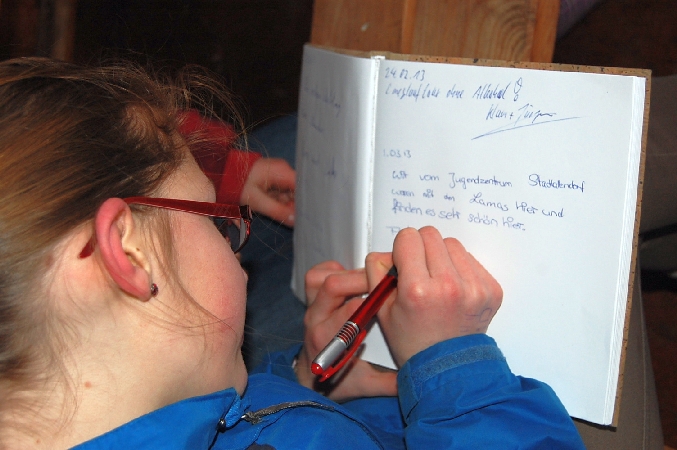 24.02.13
Langlauf Loks ohne Alkohol
Klaus + Jürgen
1.03.13
Wir vom Jugendzentrum Stadtallendorf
waren mit den Lamas hier und
finden es sehr schön hier.